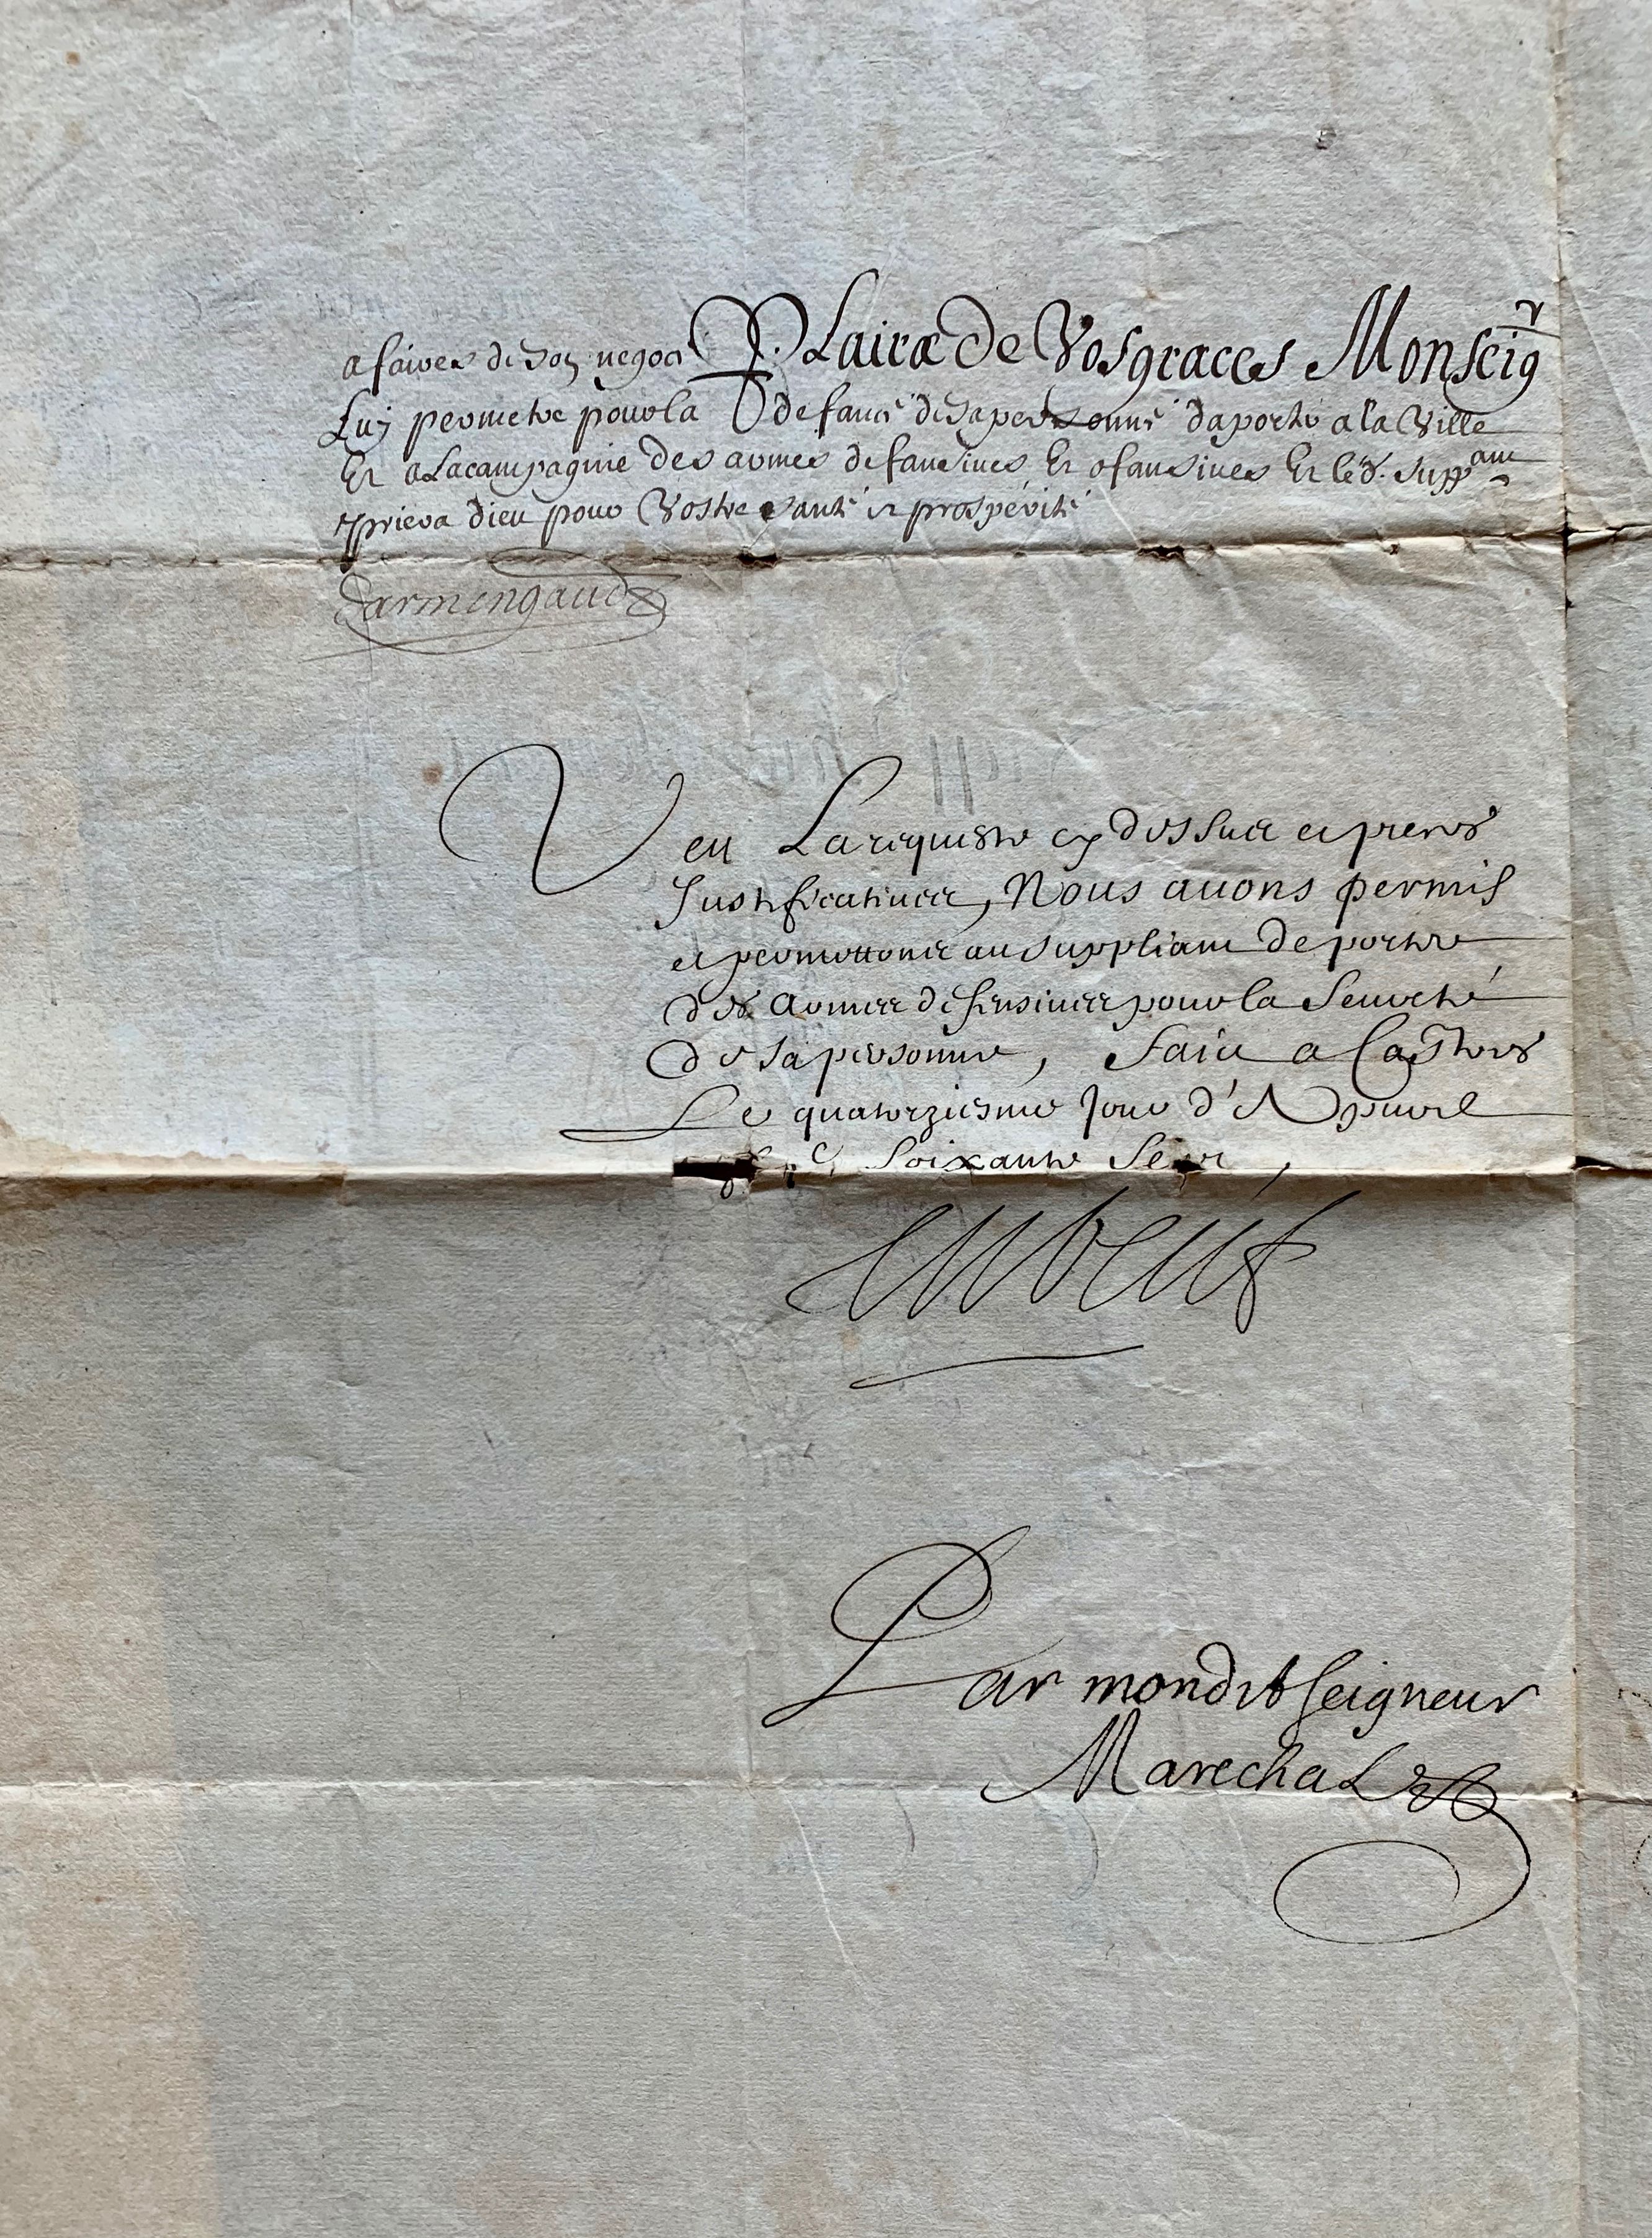 afaires de son negoci Plaira de Vos graces Monseigr
Luy permetre pour la defance de sa personne daporter a la Ville
Et a Lacampagnie des armes defansives Et ofansives Et led. suppant
priera dieu pour Vostre santé et prosperité
Darmengaud
Veu La requeste cy dessus et pieces
Justificatiues, Nous auons permis
et permettons au suppliant de porter
des armes defensiues pour la seureté
de sa personne, faict a Castres
Le quatorziesme Jour d'Apuril
soixante sept,
Par mondit seigneur
Marechal